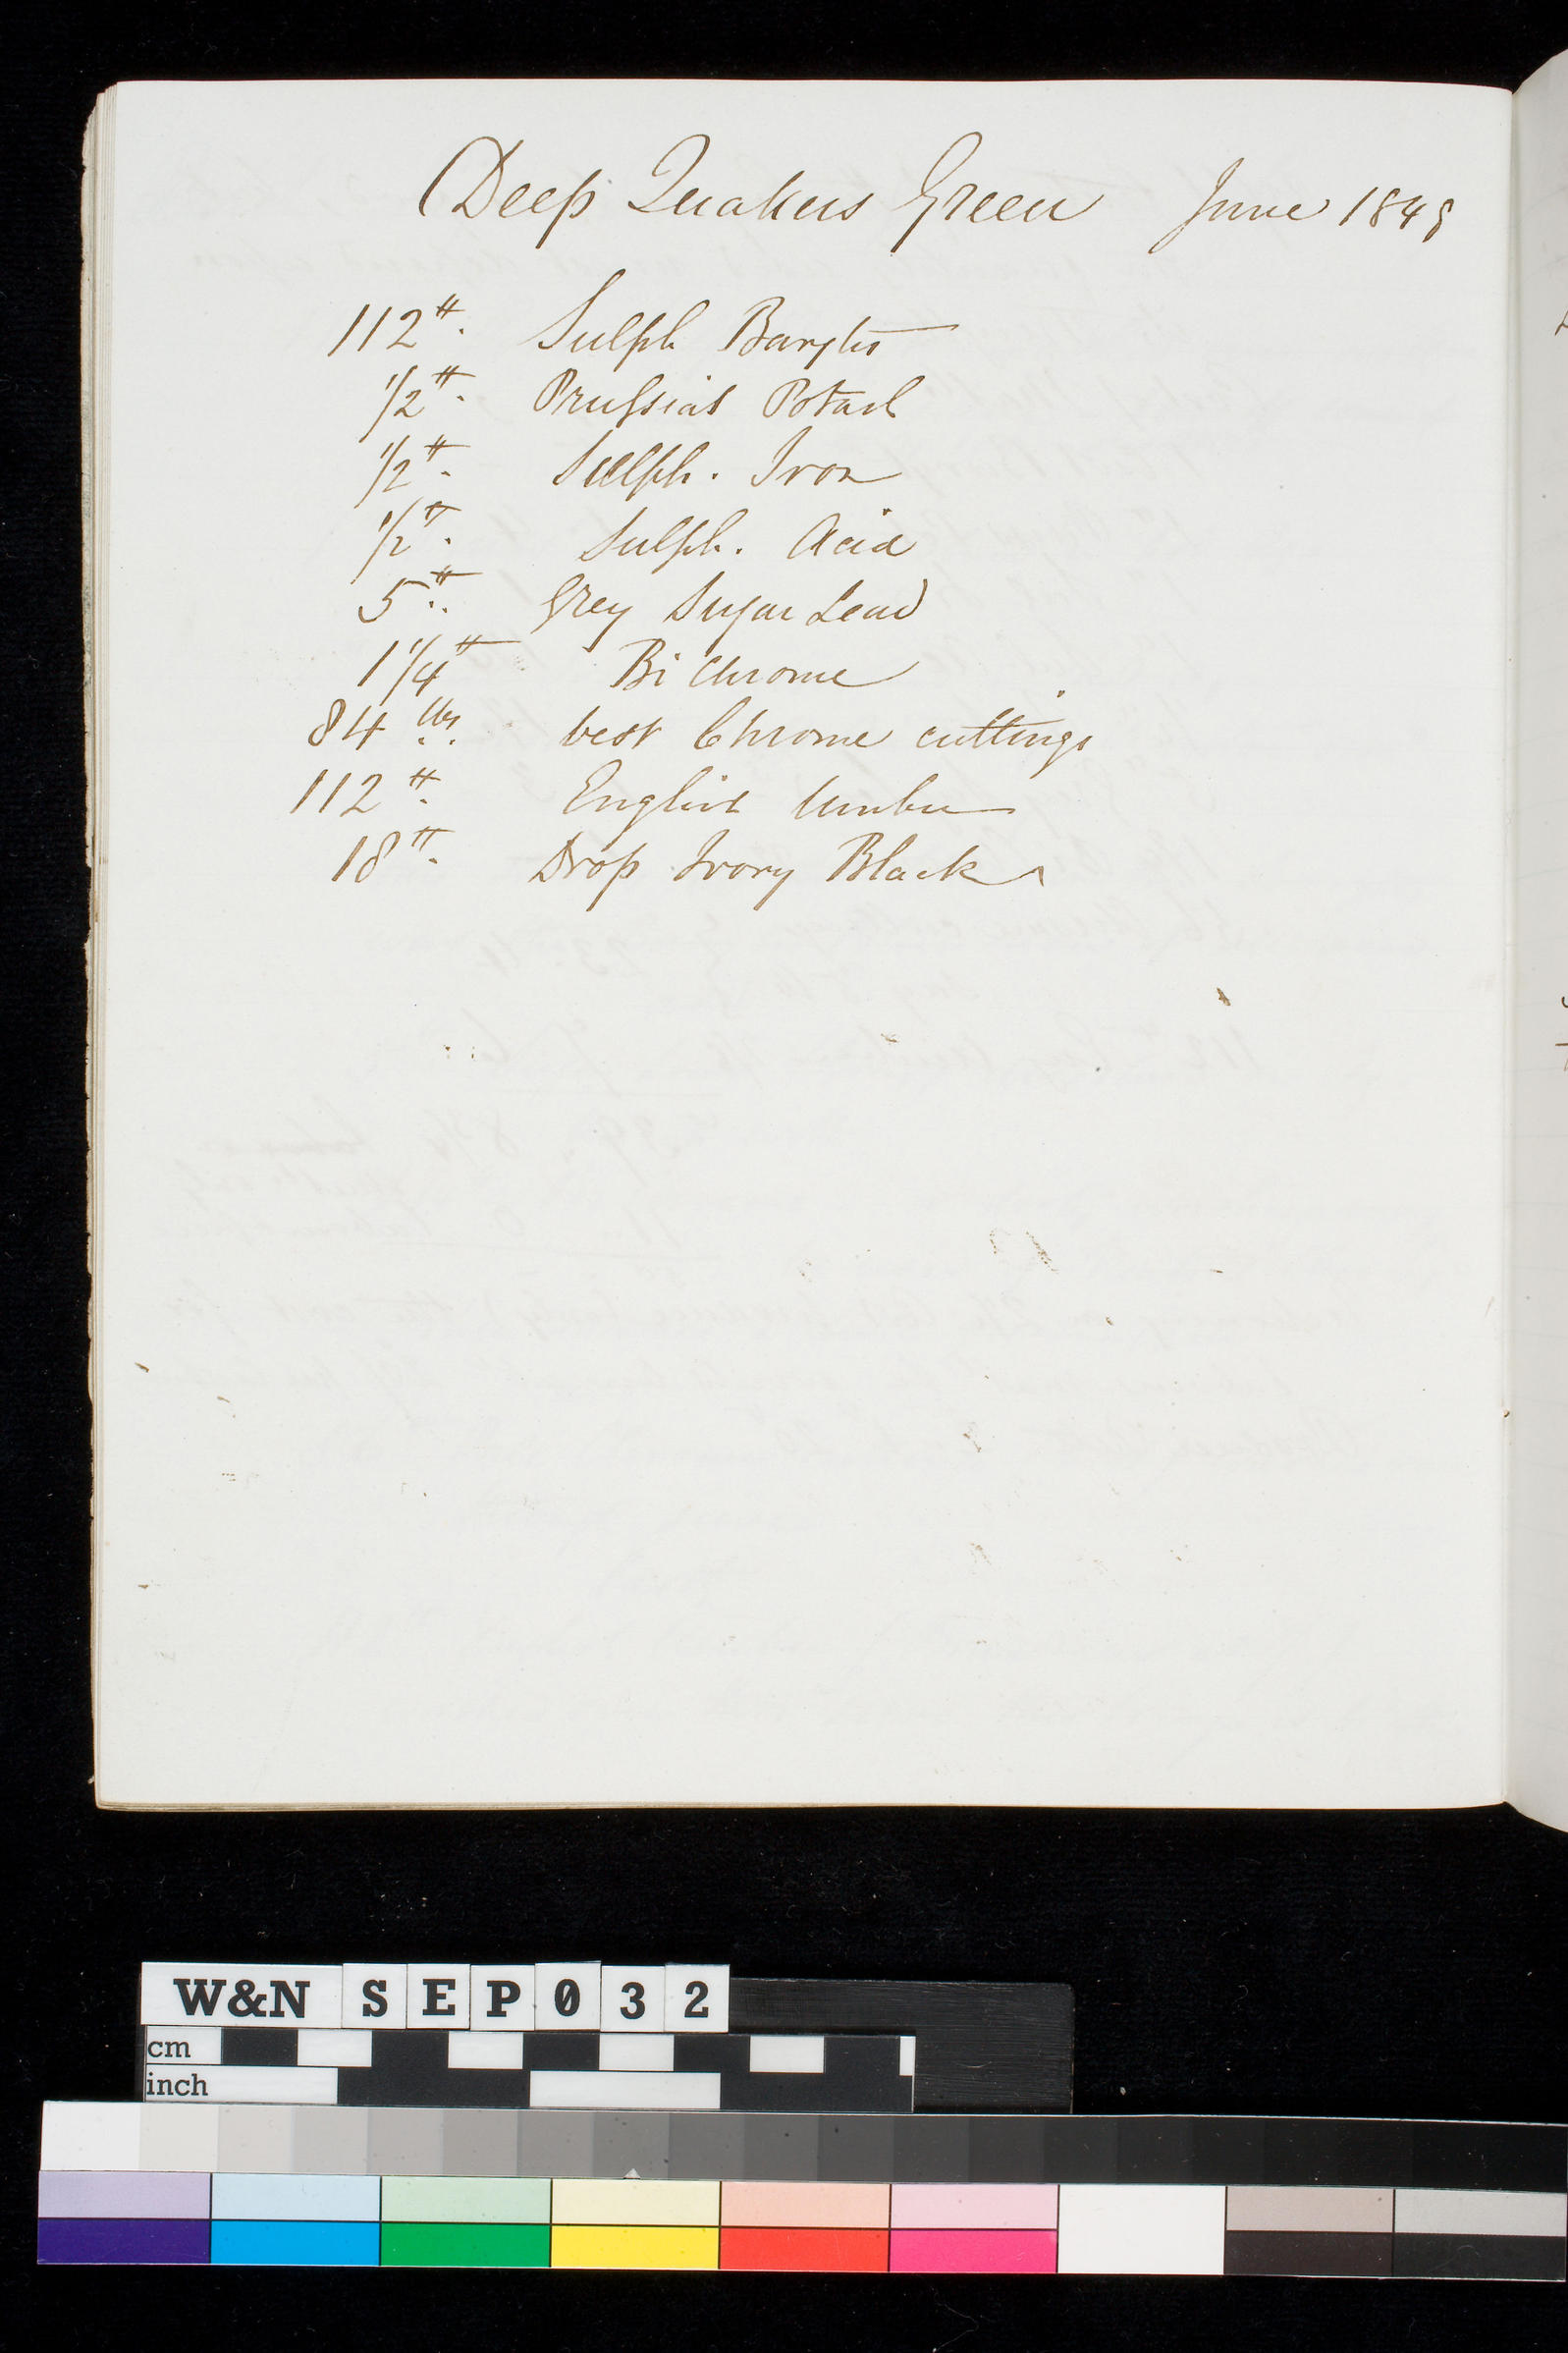 Deep Quakers Green June 1849
112 ℔. Sulph Barytes
1/2 ℔. Prussiat Potash
1/2 ℔. Sulph. Iron
1/2 ℔. Sulph. Acid
5 ℔. Grey Sugar Lead
1 1/4 ℔ Bi Chrome
84 lbs. best Chrome cuttings
112 ℔. English Umber
18 ℔. Drop Ivory Black
W&N SEP032
cm
inch